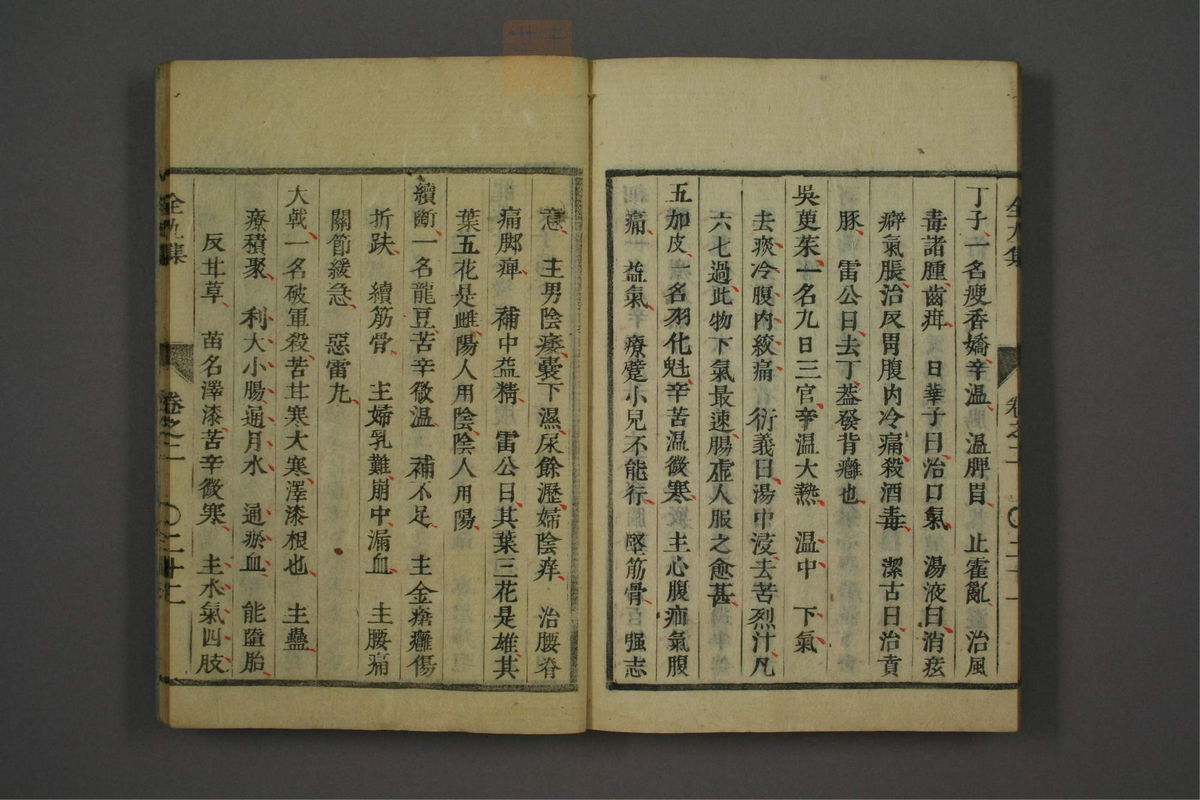 丁子一名瘦香嬌辛温 温脾胃 止霍亂 治風
毒諸腫齒疳 日華子曰治口氣 湯液曰消痃
癖氣脹治反胃腹内冷痛殺酒毒 潔古曰治賁
豚 雷公曰去丁葢發背癰也
吳茰茱一名九日三官辛温大熱 温中 下氣
去痰冷腹内絞痛 衍義曰湯中浸去苦烈汁凡
六七過此物下氣最速腸虚人服之愈甚
五加皮一名羽化魁辛苦温微寒 主心腹疝氣腹
痛 益氣 療躄小兒不能行 堅筋骨 强志
意 主男陰痿囊下濕尿餘瀝婦陰痒 治腰脊
痛脚痺 補中益精 雷公曰其葉三花是雄其
葉五花是雌陽人用陰陰人用陽
續斷一名龍豆苦辛微温 補不足 主金瘡癰傷
折趺 續筋骨 主婦乳難崩中漏血 主腰痛
關節緩急 惡雷丸
大戟一名破軍殺苦甘寒大寒澤漆根也 主蠱
療積聚 利大小腸通月水 通瘀血 能墮胎
反甘草 苗名澤漆苦辛微寒 主水氣四肢
卷之二 〇二十二